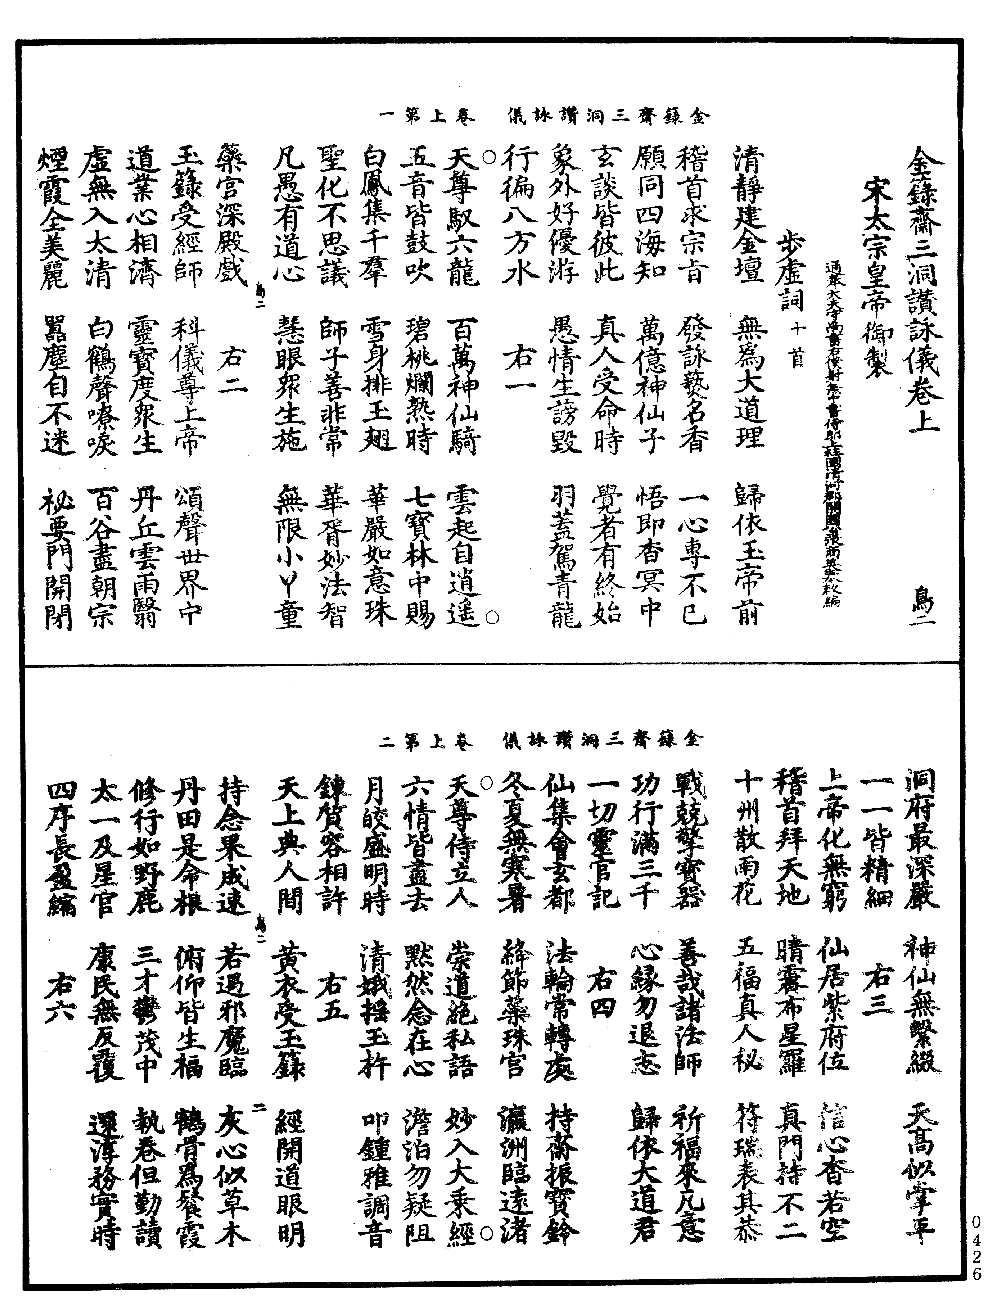 金籙齋三洞讚詠儀　卷上第一
金籙齋三洞讚詠儀卷上　鳥二
宋太宗皇帝御製
通義大夫守尚書右僕射兼中書侍郎上柱國清河郡開國張商英奉敕編
步虛詞十首
清靜建金壇　無為大道理　歸依玉帝前
稽首求宗旨　發詠爇名香　一心專不已
願同四海知　萬億神仙子　悟即杳冥中
玄談皆彼此　真人受命時　覺者有終始
象外好優游　愚情生謗毀　羽蓋駕青龍
行徧八方水　右一
○天尊馭六龍　百萬神仙騎　雲起自逍遥○
五音皆鼓吹　碧桃爛熟時　七寶林中賜
白鳳集千羣　雪身排玉翅　華嚴如意珠
聖化不思議　師子善非常　華胥妙法智
凡愚有道心　慧眼衆生施　無限小丫童
鳥二
藥宮深殿戲　右二
玉籙受經師　科儀尊上帝　頌聲世界中
道業心相濟　靈寶度衆生　丹丘雲雨翳
虛無入太清　白鶴聲嘹唳　百谷盡朝宗
煙霞全美麗　囂塵自不迷　祕要門開閉
金籙齋三洞讚詠儀　卷上第二
洞府最深嚴　神仙無繫綴　天高似掌平
一一皆精細　右三
上帝化無窮　仙居紫府位　信心杳若空
稽首拜天地　晴霽布星羅　真門持不二
十州散雨花　五福真人秘　符瑞表其恭
戰兢擎寶器　善哉諸法師　祈福來凡意
功行滿三千　心緣勿退志　歸依大道君
一切靈官記　右四
仙集會玄都　法輪常轉處　持齋振寶鈴
冬夏無寒暑　絳節蘂珠宮　瀛洲臨遠渚
○天尊侍立人　崇道絕私語　妙入大乘經○
六情皆盡去　默然念在心　澹泊勿疑阻
月皎盛明時　清娥搖玉杵　叩鍾雅調音
鍊質容相許　右五
天上與人間　黃衣受玉籙　經開道眼明
鳥二　二
持念果成速　若遇邪魔臨　灰心似草木
丹田是命根　俯仰皆生福　鶴骨為餐霞
修行如野鹿　三才鬱茂中　執卷但勤讀
太一及星官　康民無反覆　還淳務實時
四序長盈縮　右六
0426